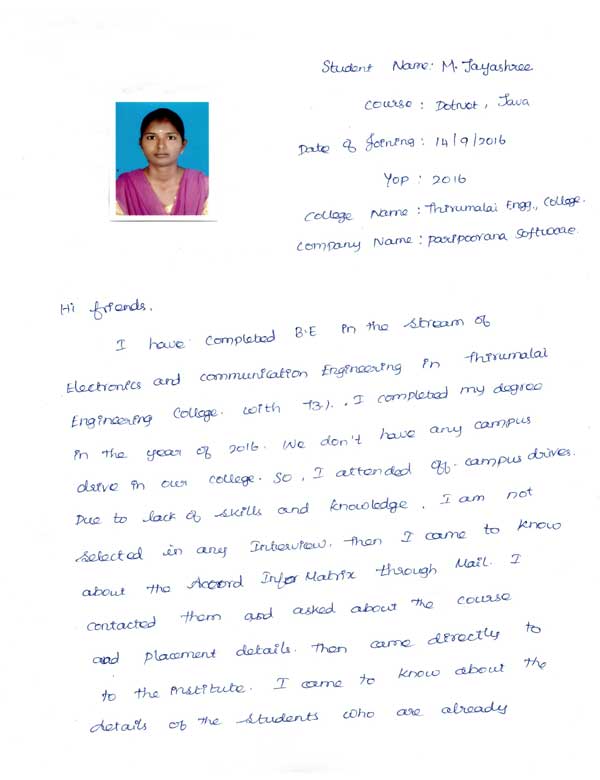 Student Name: M. Jayashree
Course : Dotnet, Java
Date of Joining : 14/9/2016
YOP : 2016
College Name : Thirumalai Engg., College.
Company Name : Paripoorana Software.
Hi friends,
I have completed B.E in the stream of
Electronics and communication Engineering in Thirumalai
Engineering College. with 73%., I completed my degree
in the year of 2016. We don't have any campus
drive in our college. So, I attended off-campus drives.
Due to lack of skills and knowledge, I am not
selected in any Interview. Then I came to know
about the Accord Info Matrix through Mail. I
contacted them and asked about the course
and placement details. Then came directly to
to the institute. I came to know about the
details of the students who are already